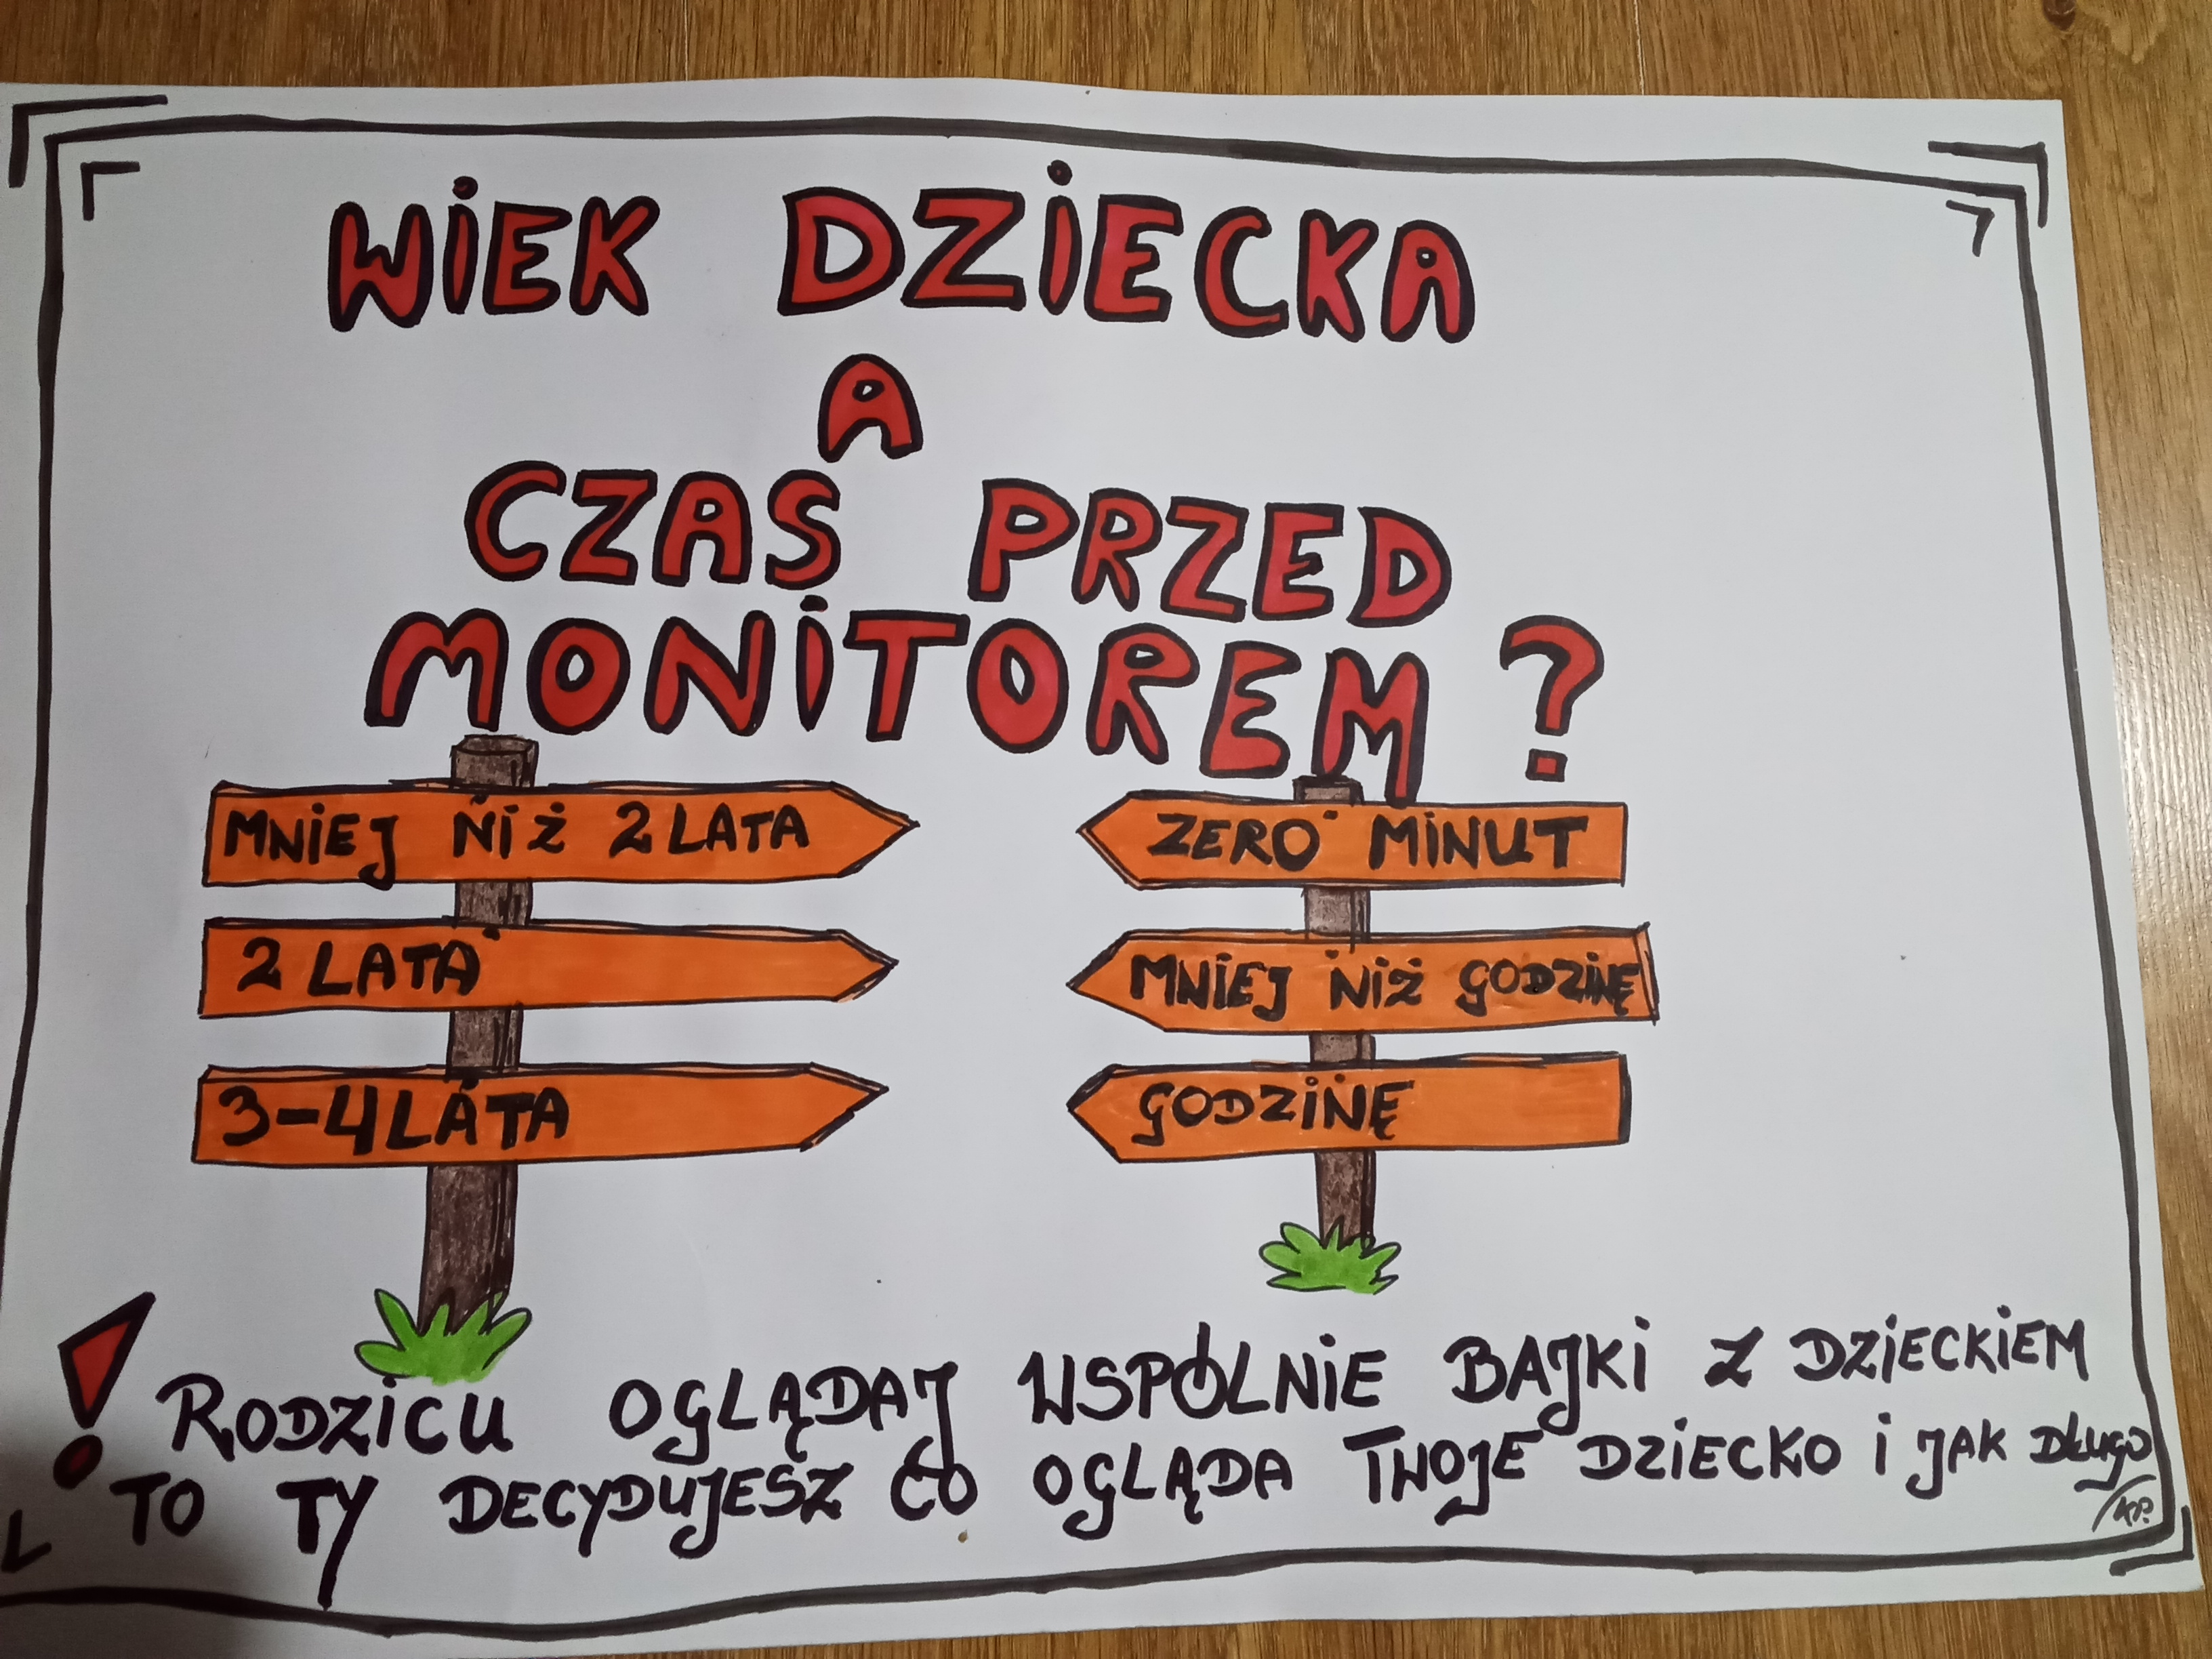 WIEK DZIECKA
A
CZAS PRZED
MONITOREM ?
MNIEJ NIŻ 2 LATA
ZERO MINUT
2 LATA
MNIEJ NIŻ GODZINĘ
3-4 LATA
GODZINĘ
! RODZICU OGLĄDAJ WSPÓLNIE BAJKI Z DZIECKIEM
TO TY DECYDUJESZ CO OGLĄDA TWOJE DZIECKO I JAK DŁUGO